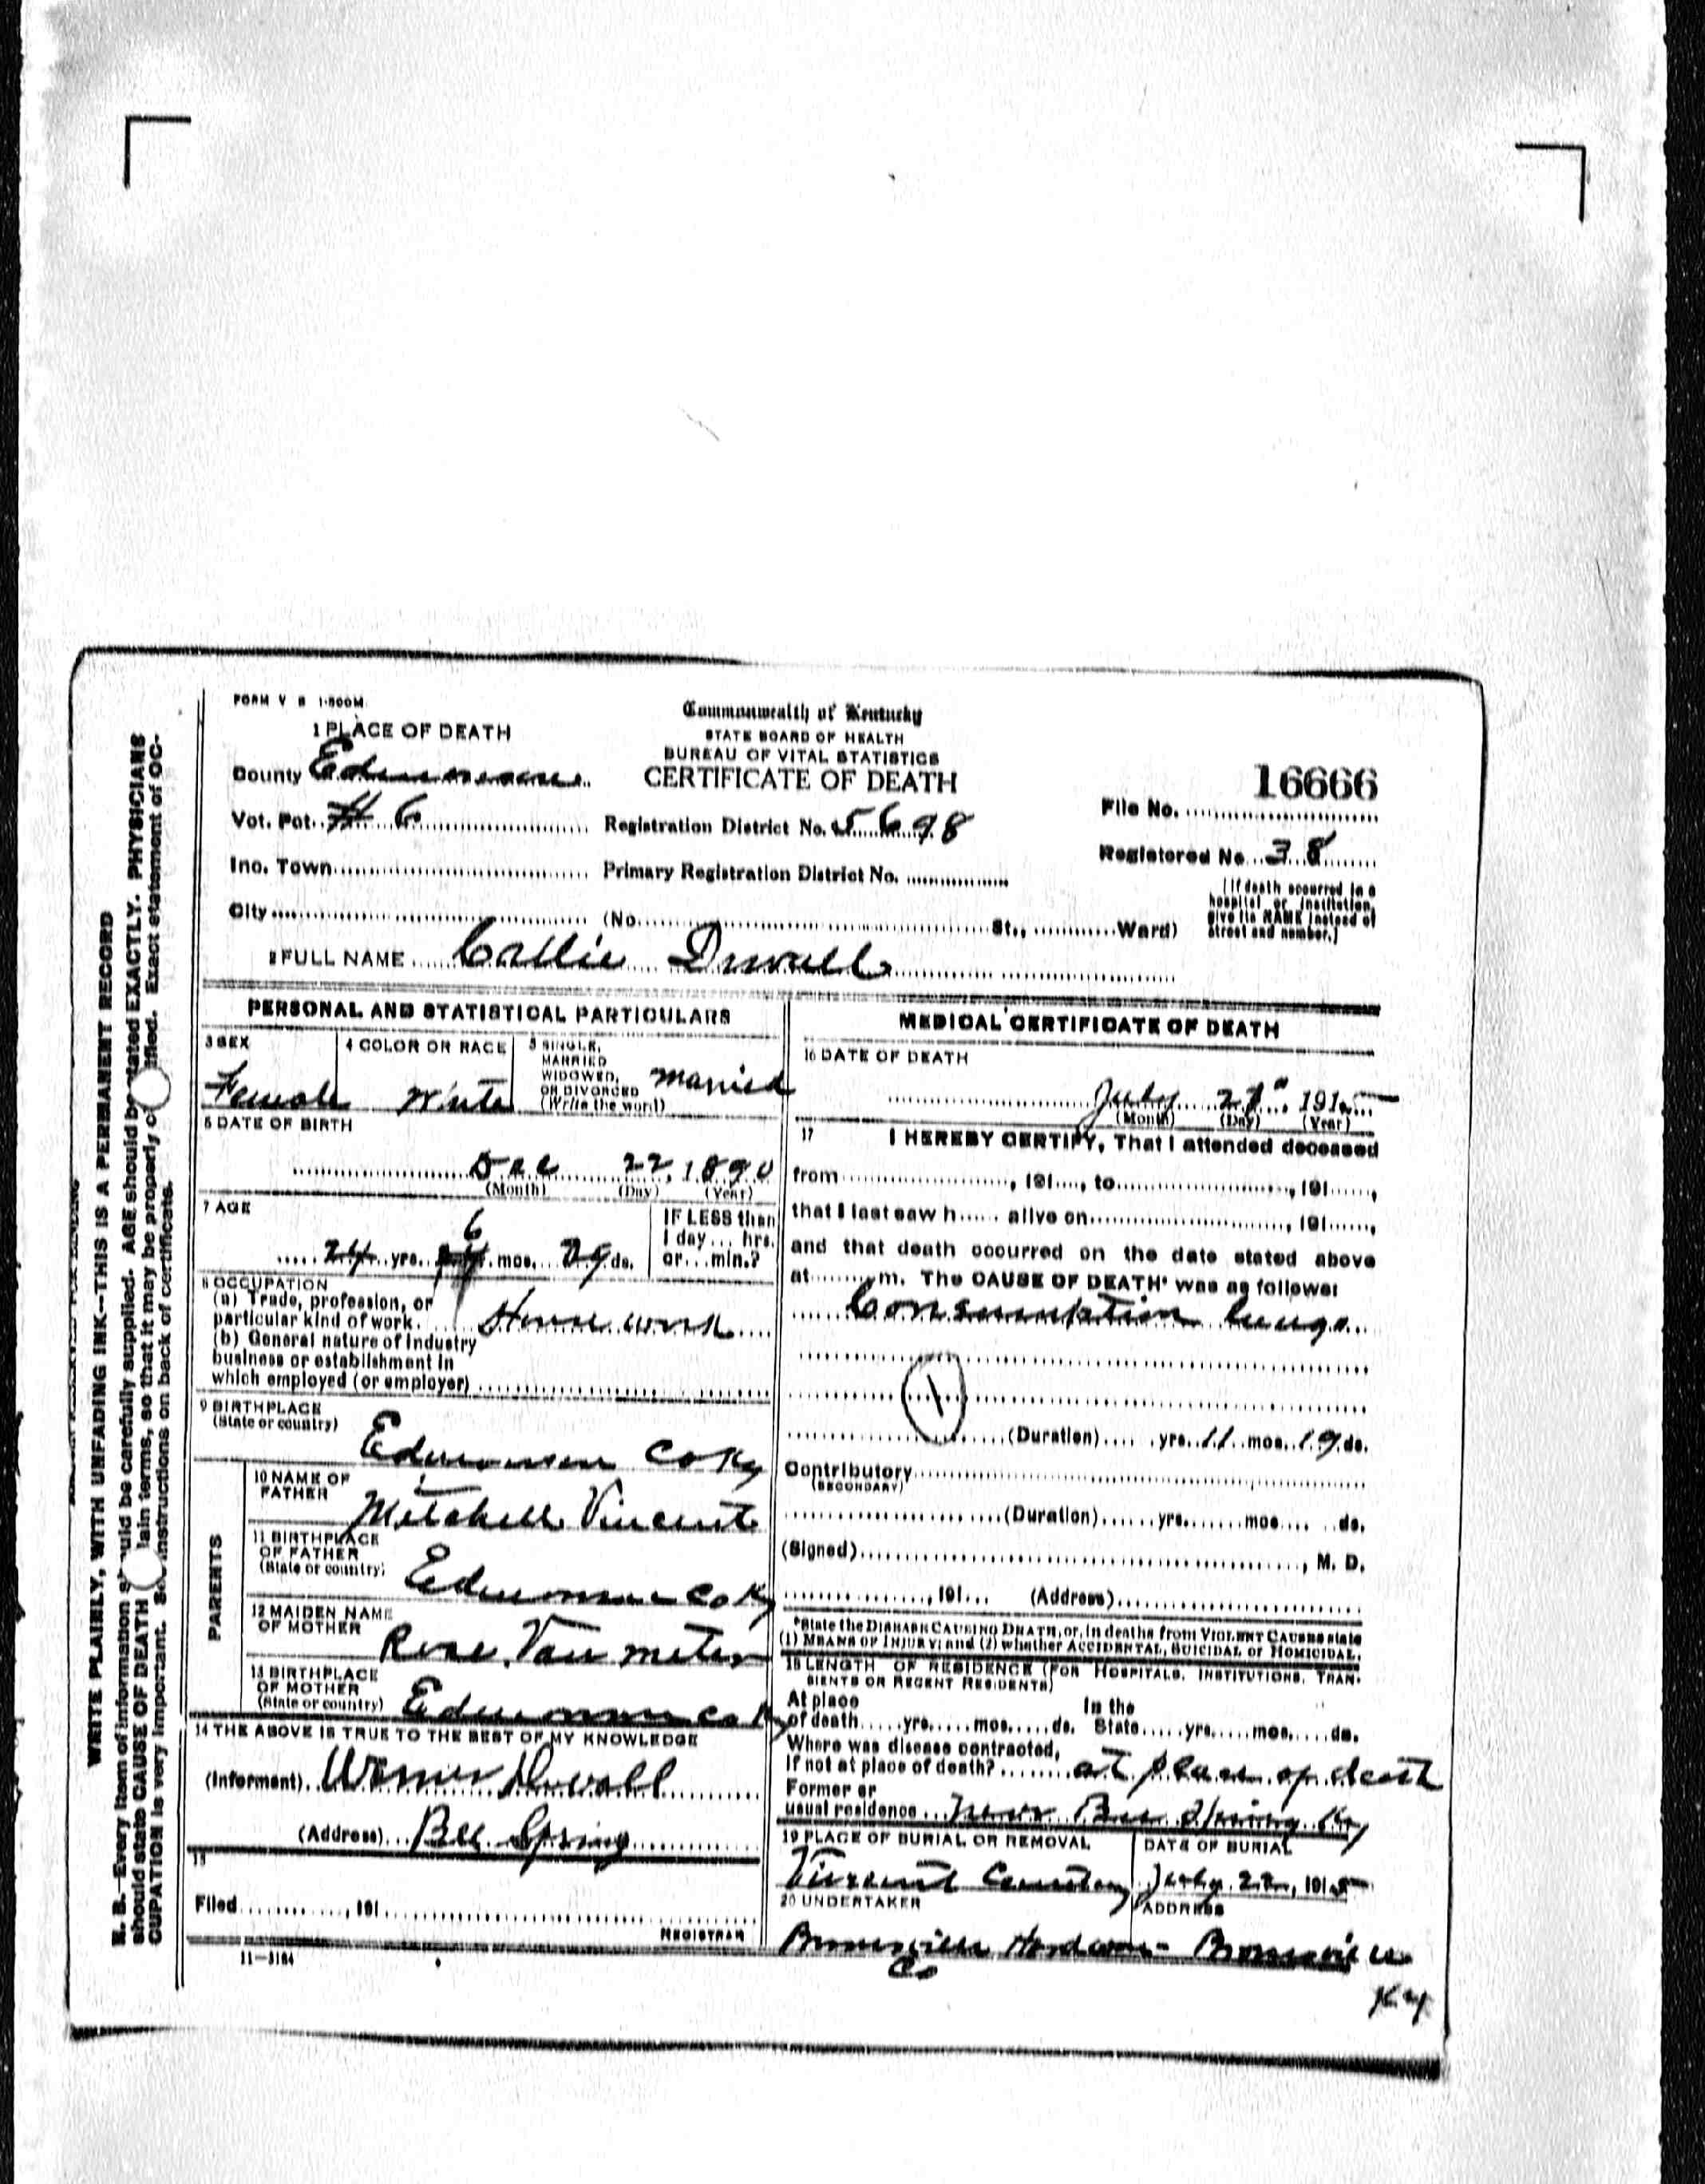 FORM V S 1-500M
Commonwealth of Kentucky
STATE BOARD OF HEALTH
BUREAU OF VITAL STATISTICS
CERTIFICATE OF DEATH
1 PLACE OF DEATH
County Edmonson
Vot. Pct. 6
Registration District No. 5698
File No. 16666
Registered No. 38
Inc. Town
Primary Registration District No.
City (No. St., Ward)
[If death occurred in a
hospital or institution,
give its NAME instead of
street and number.]
2 FULL NAME Callie Duvall
PERSONAL AND STATISTICAL PARTICULARS
3 SEX
Female
4 COLOR OR RACE
White
5 SINGLE,
MARRIED
WIDOWED,
OR DIVORCED
(Write the word)
married
6 DATE OF BIRTH
Dec 22, 1890
(Month) (Day) (Year)
7 AGE
24 yrs. 6 mos. 29 ds.
IF LESS than
1 day... hrs.
or... min.?
8 OCCUPATION
(a) Trade, profession, or
particular kind of work. House work
(b) General nature of industry
business or establishment in
which employed (or employer)
9 BIRTHPLACE
(State or country)
Edmonson Co Ky
PARENTS
10 NAME OF
FATHER
Mitchell Vincent
11 BIRTHPLACE
OF FATHER
(State or country)
Edmonson Co Ky
12 MAIDEN NAME
OF MOTHER
Rose Van meter
13 BIRTHPLACE
OF MOTHER
(State or country)
Edmonson Co Ky
14 THE ABOVE IS TRUE TO THE BEST OF MY KNOWLEDGE
(Informant) Duvall
(Address) Bee Spring
15
Filed , 191
REGISTRAR
11-3184
MEDICAL CERTIFICATE OF DEATH
16 DATE OF DEATH
July 21", 1915
(Month) (Day) (Year)
17 I HEREBY CERTIFY, That I attended deceased
from , 191 , to , 191 ,
that I last saw h alive on , 191 ,
and that death occurred on the date stated above
at m. The CAUSE OF DEATH* was as follows:
Consumption lungs
1
(Duration) yrs. 11 mos. 19 ds.
Contributory
(SECONDARY)
(Duration) yrs. mos. ds.
(Signed) , M. D.
, 191 (Address)
*State the DISEASE CAUSING DEATH, or, in deaths from VIOLENT CAUSES state
(1) MEANS OF INJURY; and (2) whether ACCIDENTAL, SUICIDAL or HOMICIDAL.
18 LENGTH OF RESIDENCE (FOR HOSPITALS, INSTITUTIONS, TRAN-
SIENTS OR RECENT RESIDENTS)
At place
of death yrs. mos. ds.
In the
State yrs. mos. ds.
Where was disease contracted,
If not at place of death? at place of death
Former or
usual residence near Bee Spring Ky
19 PLACE OF BURIAL OR REMOVAL
Vincent Cemetery
DATE OF BURIAL
July 22, 1915
20 UNDERTAKER
Brownsville Hardware Co
ADDRESS
Brownsville Ky
WRITE PLAINLY, WITH UNFADING INK--THIS IS A PERMANENT RECORD
N. B.--Every item of information should be carefully supplied. AGE should be stated EXACTLY. PHYSICIANS
should state CAUSE OF DEATH lain terms, so that it may be properly c ified. Exact statement of OC-
CUPATION is very important. See instructions on back of certificate.